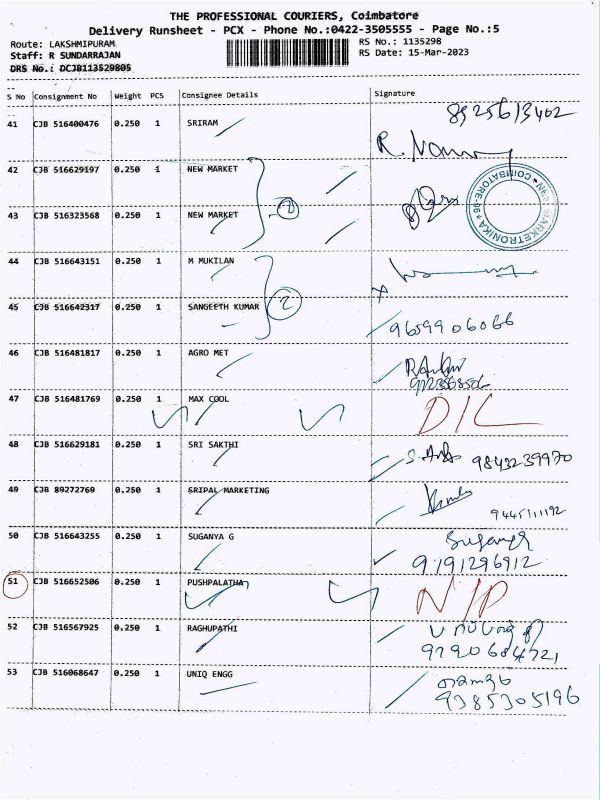 THE PROFESSIONAL COURIERS, Coimbatore
Delivery Runsheet - PCX - Phone No.:0422-3505555 - Page No.:5
Route: LAKSHMIPURAM
Staff: R SUNDARRAJAN
DRS No.: DCJB113529805
RS No.: 1135298
RS Date: 15-Mar-2023
S No Consignment No Weight PCS Consignee Details Signature
41 CJB 516400476 0.250 1 SRIRAM 8925613402
42 CJB 516629197 0.250 1 NEW MARKET
43 CJB 516323568 0.250 1 NEW MARKET
2
44 CJB 516643151 0.250 1 M MUKILAN
45 CJB 516642317 0.250 1 SANGEETH KUMAR 9659906066
2
46 CJB 516481817 0.250 1 AGRO MET
47 CJB 516481769 0.250 1 MAX COOL D/L
48 CJB 516629181 0.250 1 SRI SAKTHI 9843239970
49 CJB 89272769 0.250 1 SRIPAL MARKETING 9445111192
50 CJB 516643255 0.250 1 SUGANYA G Suganya
9191296912
51 CJB 516652506 0.250 1 PUSHPALATHA N/P
52 CJB 516567925 0.250 1 RAGHUPATHI
9790684721
53 CJB 516068647 0.250 1 UNIQ ENGG
9385305196